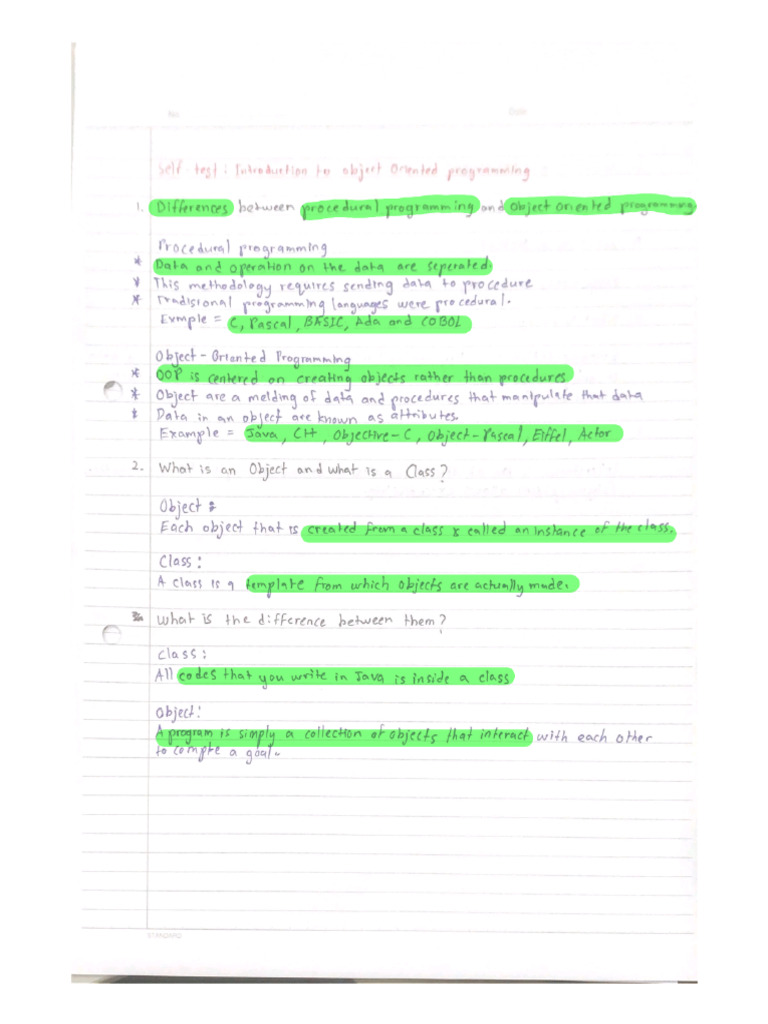 No.
Date
Self test : Introduction to object Oriented programming :
1. Differences between procedural programming and Object Oriented programming
Procedural programming
* Data and operation on the data are seperated
* This methodology requires sending data to procedure
* Tradisional programming languages were procedural.
Exmple = C, Pascal, BASIC, Ada and COBOL
Object - Oriented Programming
* OOP is centered on creating objects rather than procedures
* Object are a melding of data and procedures that manipulate that data
* Data in an object are known as attributes.
Example = Java, C++, Objective-C, Object-Pascal, Eiffel, Actor
2. What is an Object and what is a Class?
Object :
Each object that is created from a class is called an instance of the class.
Class :
A class is a template from which objects are actually made.
What is the difference between them?
class :
All codes that you write in Java is inside a class
Object :
A program is simply a collection of objects that interact with each other
to compte a goal.
STANDARD